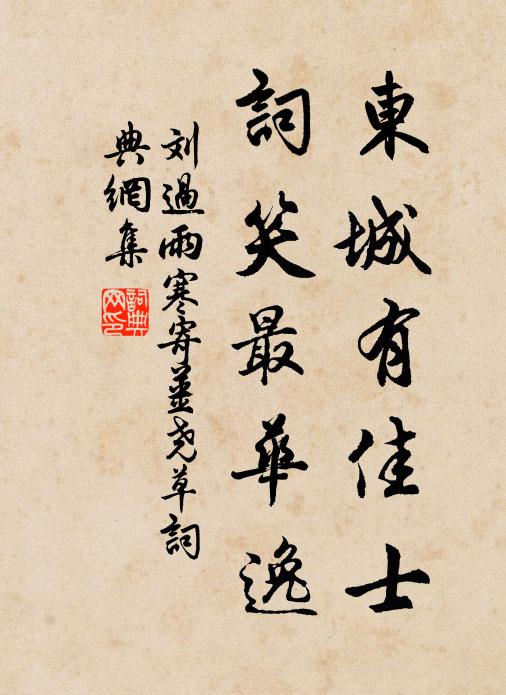 東城有佳士
詞笑最華逸
刘過雨寒寄薑尧草詞
典網集
詞典
网印